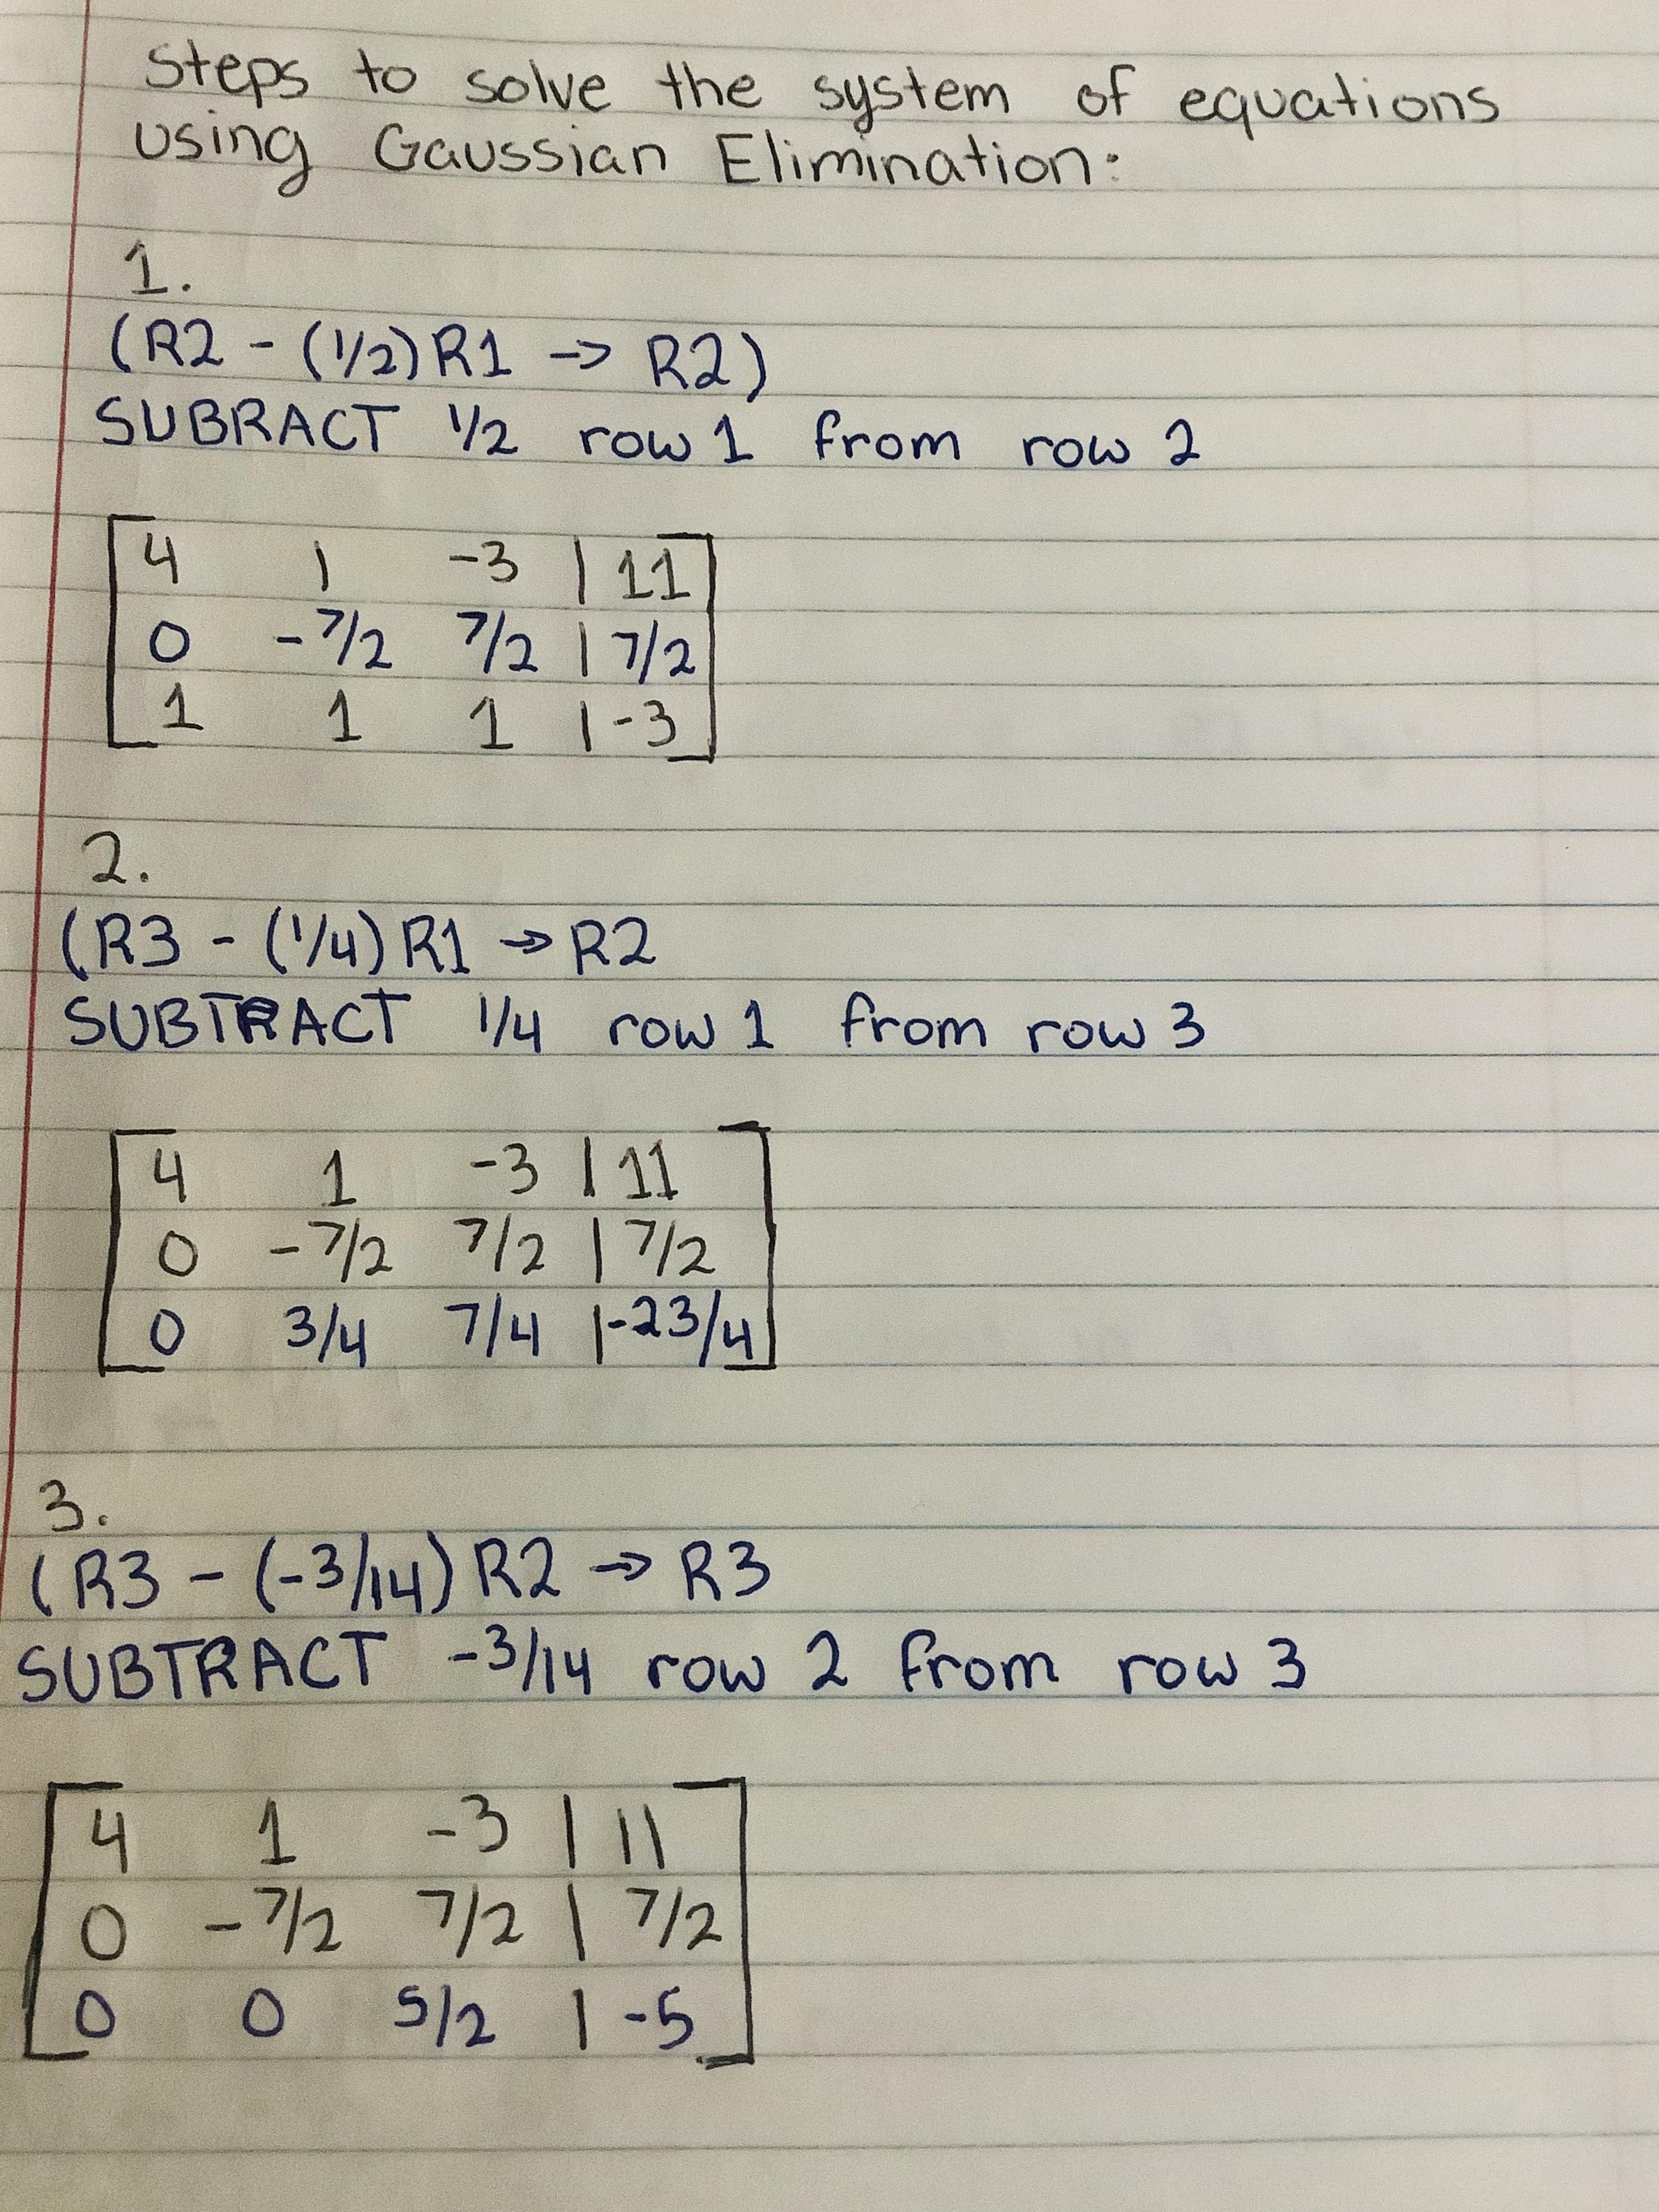 Steps to solve the system of equations
using Gaussian Elimination:
1.
(R2 - (1/2) R1 → R2)
SUBRACT 1/2 row 1 from row 2
4 1 -3 | 11
0 -7/2 7/2 | 7/2
1 1 1 | -3
2.
(R3 - (1/4) R1 → R2
SUBTRACT 1/4 row 1 from row 3
4 1 -3 | 11
0 -7/2 7/2 | 7/2
0 3/4 7/4 | -23/4
3.
(R3 - (-3/14) R2 → R3
SUBTRACT -3/14 row 2 from row 3
4 1 -3 | 11
0 -7/2 7/2 | 7/2
0 0 5/2 | -5